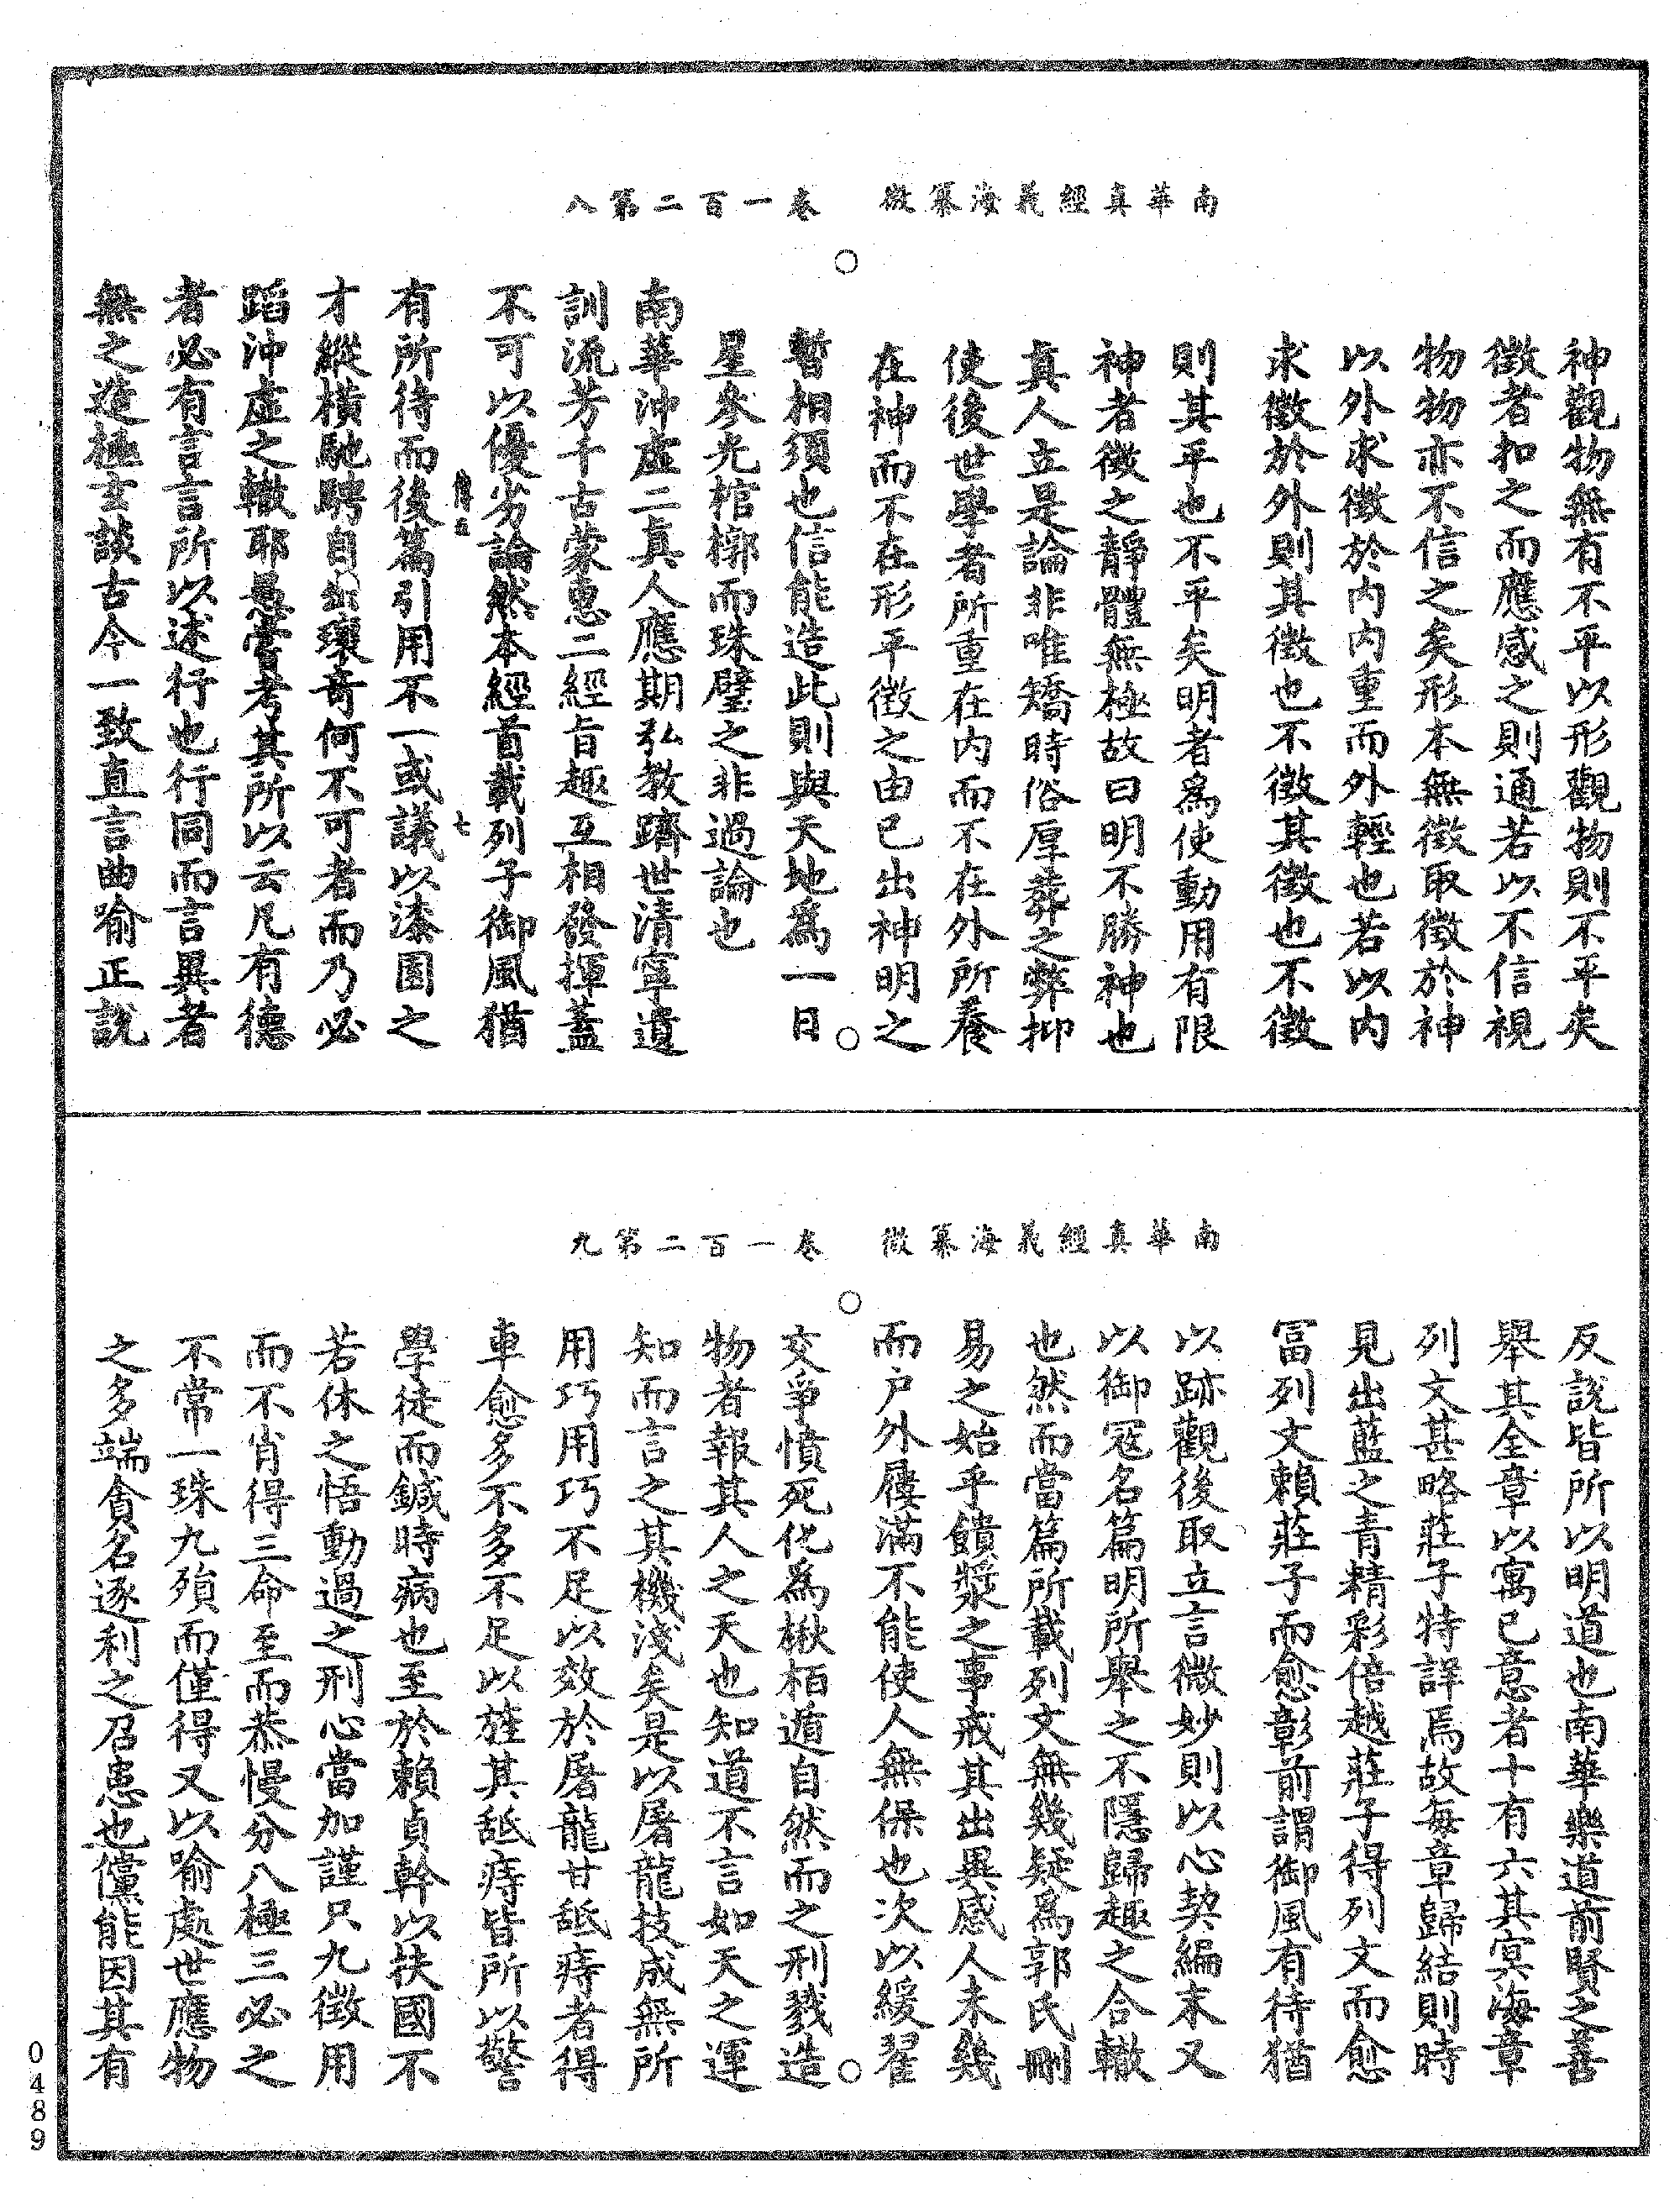 南華真經義海纂微　卷一百二第八
神觀物無有不平以形觀物則不平矣
徵者扣之而應感之則通若以不信視
物物亦不信之矣形本無徵取徵於神
以外求徵於内内重而外輕也若以内
求徵於外則其徵也不徵其徵也不徵
則其平也不平矣明者爲使動用有限
神者徵之靜體無極故曰明不勝神也
真人立是論非唯矯時俗厚葬之弊抑
使後世學者所重在内而不在外所養
在神而不在形平徵之由已出神明之
暫相須也信能造此則與天地爲一日
星參光棺槨而珠璧之非過論也
南華沖虛二真人應期弘教躋世清寧遺
訓流芳千古蒙惠二經旨趣互相發揮蓋
不可以優劣論然本經首載列子御風猶
七
有所待而後篇引用不一或議以漆園之
才縱橫馳騁自出瓌奇何不可者而乃必
蹈沖虛之轍耶愚嘗考其所以云凡有德
者必有言言所以述行也行同而言異者
無之造極玄談古今一致直言曲喻正說
南華真經義海纂微　卷一百二第九
反說皆所以明道也南華樂道前賢之善
舉其全章以寓已意者十有六其㝠海章
列文甚略莊子特詳焉故每章歸結則時
見出藍之青精彩倍越莊子得列文而愈
富列文賴莊子而愈彰前謂御風有待猶
以跡觀後取立言微妙則以心契編末又
以御冦名篇明所舉之不隱歸趣之合轍
也然而當篇所載列文無幾疑爲郭氏刪
易之始乎饋漿之事戒其出異感人未幾
而户外屨滿不能使人無保也次以緩翟
交爭憤死化爲楸栢遁自然而之刑戮造
物者報其人之天也知道不言如天之運
知而言之其機淺矣是以屠龍技成無所
用巧用巧不足以效於屠龍甘舐痔者得
車愈多不多不足以旌其舐痔皆所以警
學徒而鍼時病也至於賴貞幹以扶國不
若休之悟動過之刑心當加謹只九徵用
而不肖得三命至而恭慢分八極三必之
不常一珠九殞而僅得又以喻處世應物
之多端貪名逐利之召患也儻能因其有
0489